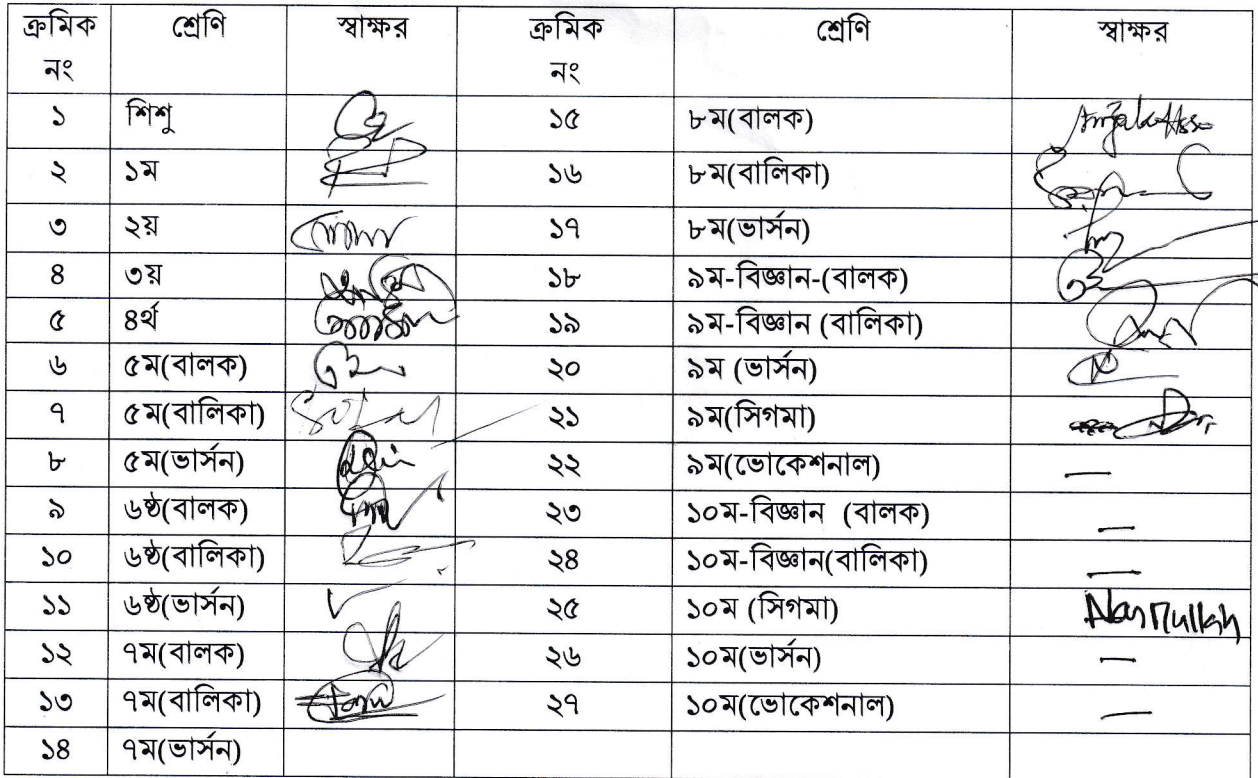 ক্রমিক নং শ্রেণি স্বাক্ষর ক্রমিক নং শ্রেণি স্বাক্ষর
১ শিশু ১৫ ৮ম(বালক)
২ ১ম ১৬ ৮ম(বালিকা)
৩ ২য় ১৭ ৮ম(ভার্সন)
৪ ৩য় ১৮ ৯ম-বিজ্ঞান-(বালক)
৫ ৪র্থ ১৯ ৯ম-বিজ্ঞান (বালিকা)
৬ ৫ম(বালক) ২০ ৯ম (ভার্সন)
৭ ৫ম(বালিকা) ২১ ৯ম(সিগমা)
৮ ৫ম(ভার্সন) ২২ ৯ম(ভোকেশনাল) —
৯ ৬ষ্ঠ(বালক) ২৩ ১০ম-বিজ্ঞান (বালক) —
১০ ৬ষ্ঠ(বালিকা) ২৪ ১০ম-বিজ্ঞান(বালিকা) —
১১ ৬ষ্ঠ(ভার্সন) ২৫ ১০ম (সিগমা)
১২ ৭ম(বালক) ২৬ ১০ম(ভার্সন) —
১৩ ৭ম(বালিকা) ২৭ ১০ম(ভোকেশনাল) —
১৪ ৭ম(ভার্সন)